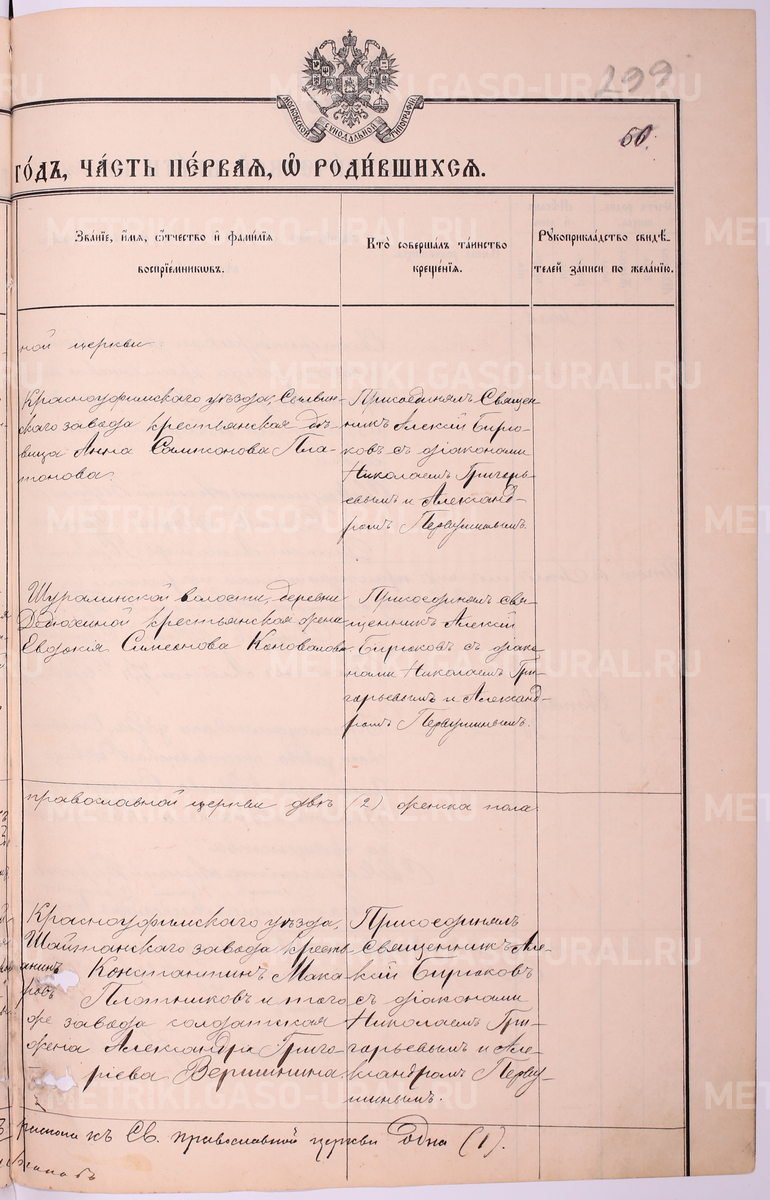 299
МОСКОВСКОЙ СѴНОДАЛЬНОЙ ТИПОГРАФІИ
50.
ГО́ДЪ, ЧА́СТЬ ПЕ́РВАЯ, Ѡ РОДИ́ВШИХСЯ.
Зва́ніе, и́мя, ѻ́тчество и҆ фами́лія воспріе́мникѡвъ.
Кто̀ соверша́лъ та́инство креще́нія.
Рꙋкоприкла́дство свидѣ́телей за́писи по жела́нію.
ной церкви
Красноуфимскаго уѣзда, Сылвин-
скаго завода крестьянская дѣ-
вица Анна Сампсонова Пла-
тонова
Присоединялъ Священ-
никъ Алексій Бирю-
ковъ съ діаконами
Николаемъ Григорь-
евымъ и Александ-
ромъ Первушинымъ.
Шуралинской волости, деревни
крестьянская жена
Евдокія Симеонова Коновалова
Присоединялъ свя-
щенникъ Алексій
Бирюковъ съ діако-
нами Николаемъ Гри-
горьевымъ и Александ-
ромъ Первушинымъ.
православной церкви двѣ (2) женска пола
Красноуфимскаго уѣзда,
Шайтанскаго завода кресть
янинъ Константинъ Мака
ровъ Плотниковъ и того
же завода солдатская
жена Александра Григо-
ріева Вершинина.
Присоединялъ
Священникъ Але-
ксій Бирюковъ
съ діаконами
Николаемъ Гри-
горьевымъ и Але-
ксандромъ Перву-
шинымъ.
раскола къ Св. православной церкви одна (1).
METRIKI.GASO-URAL.RU